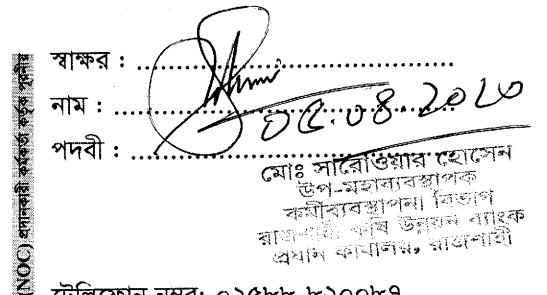 (NOC) প্রদানকারী কর্মকর্তা কর্তৃক পূরণীয়
স্বাক্ষর :
নাম :
পদবী :
মোঃ সারোওয়ার হোসেন
উপ-মহাব্যবস্থাপক
কর্মীব্যবস্থাপনা বিভাগ
রাজশাহী কৃষি উন্নয়ন ব্যাংক
প্রধান কার্যালয়, রাজশাহী
টেলিফোন নম্বর: ০২৫৮৮ ৮২০০৮৭